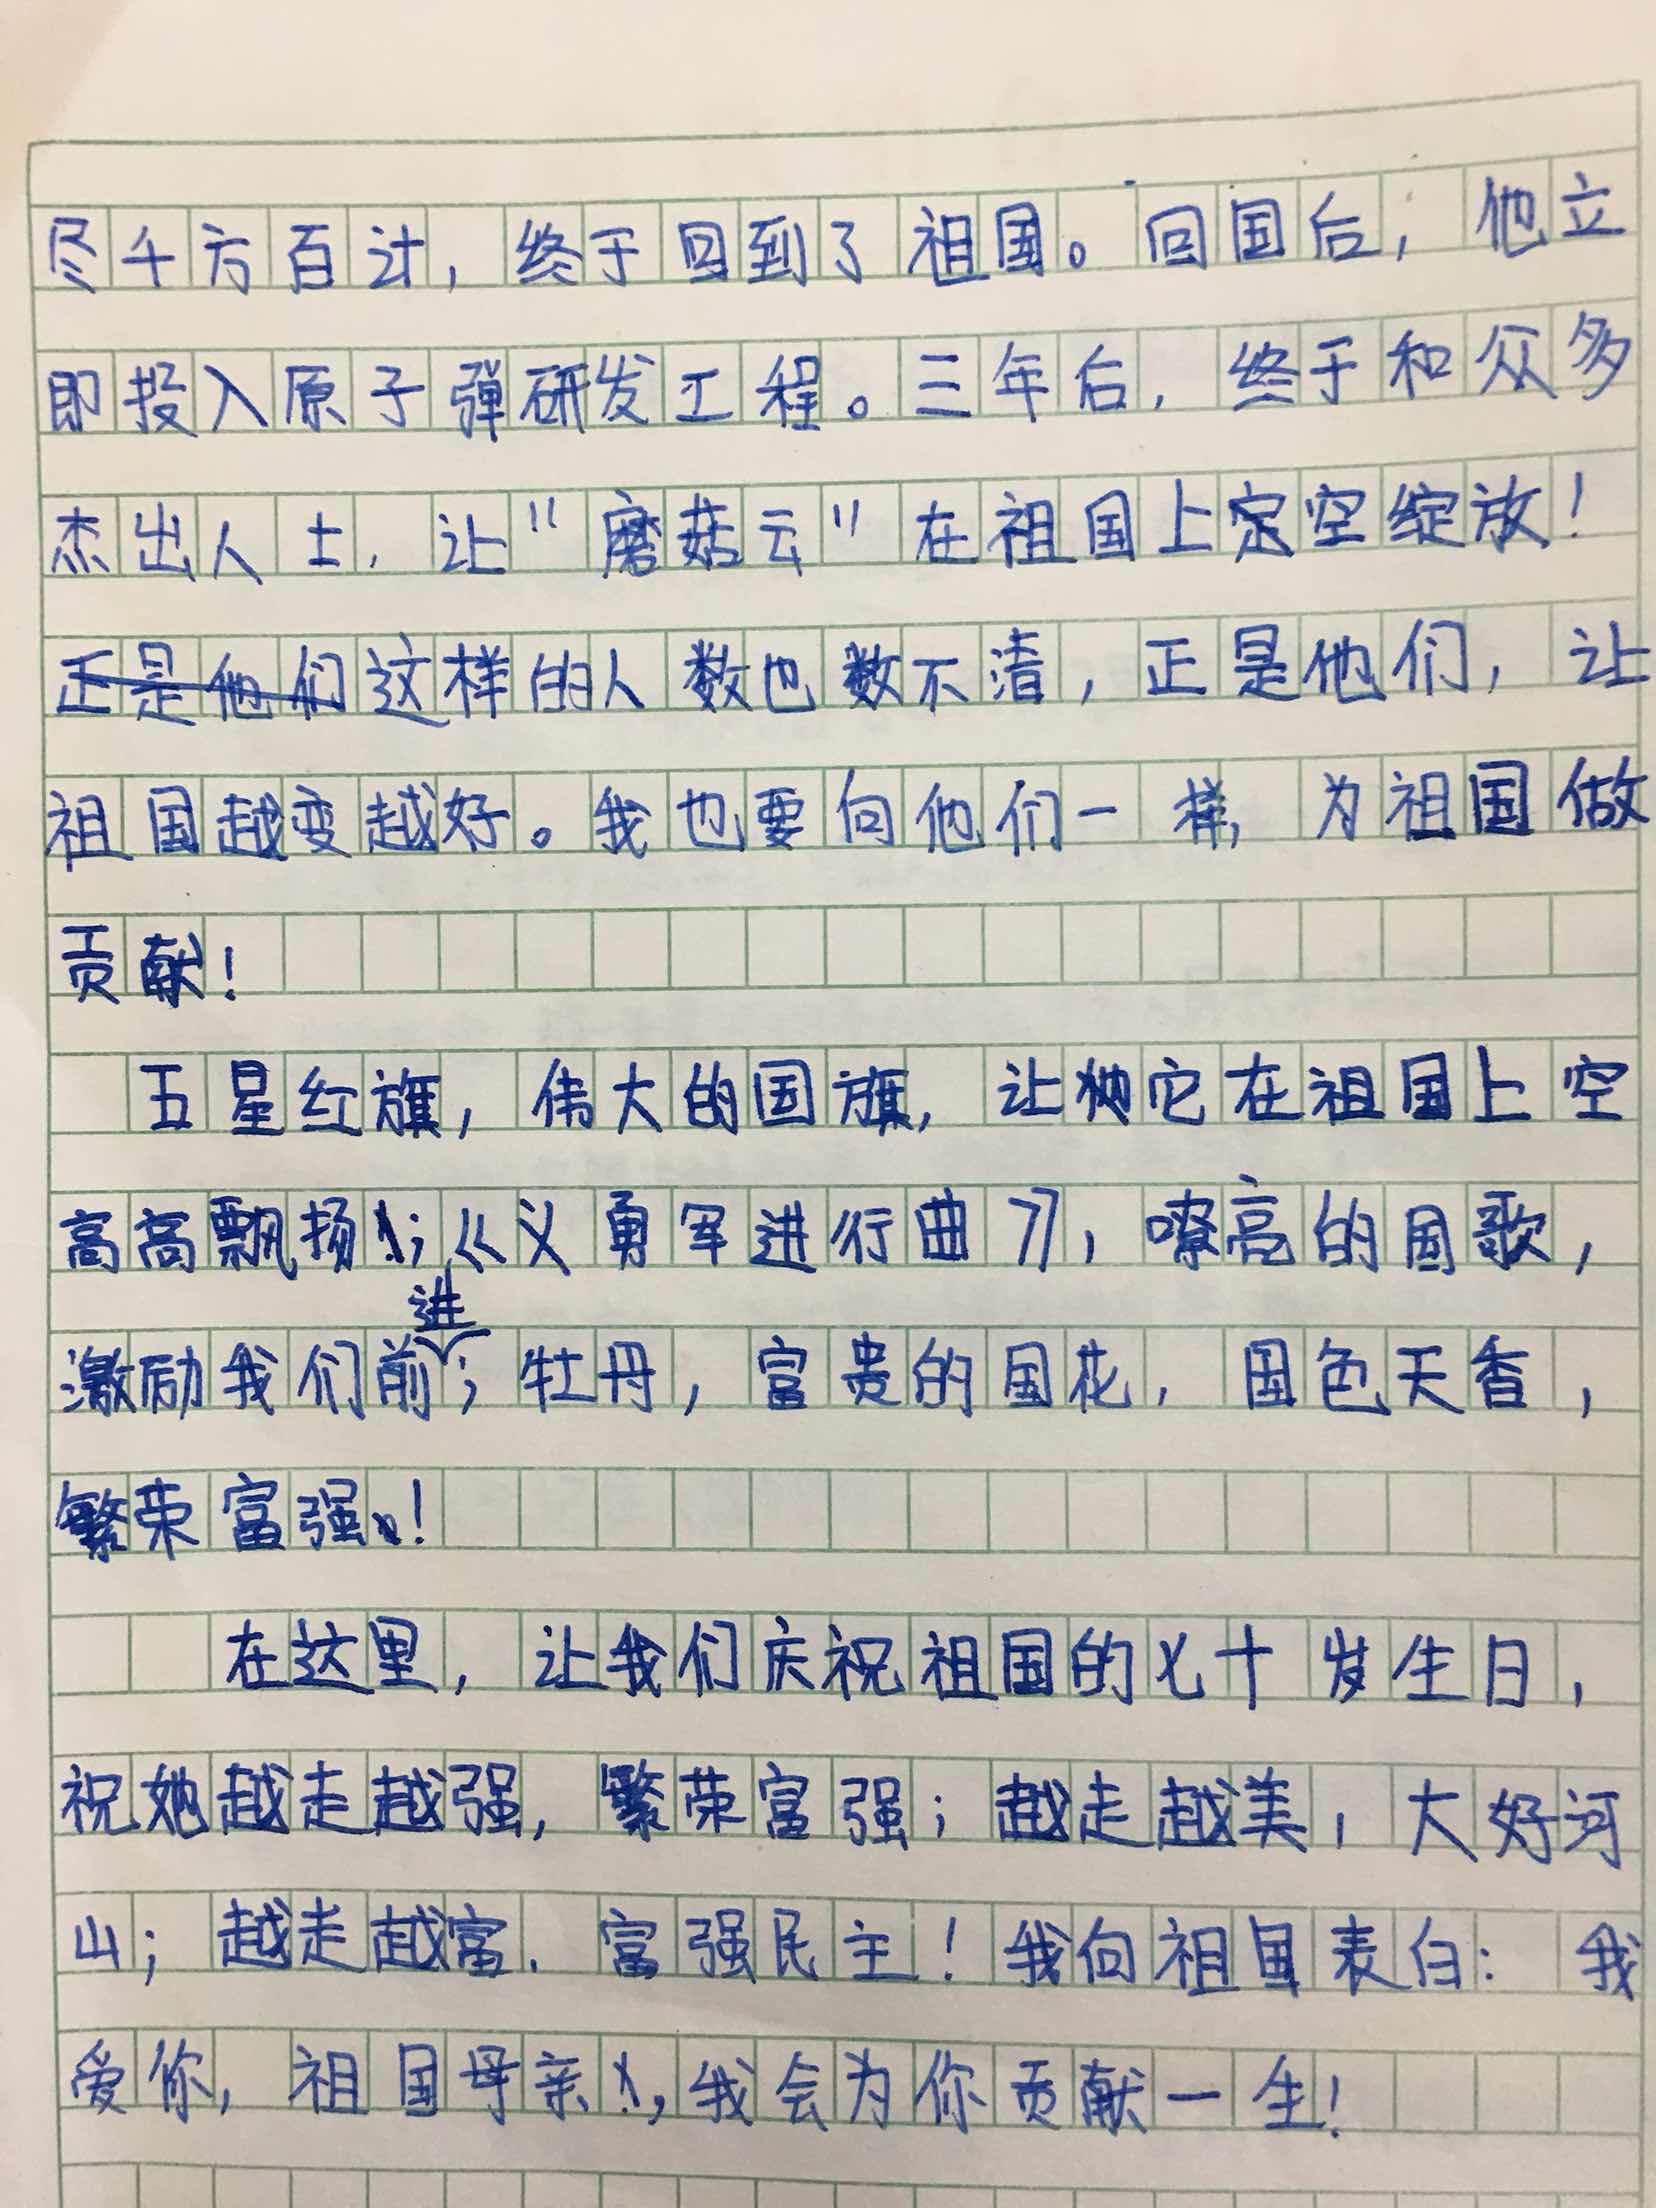 尽千方百计，终于回到了祖国。回国后，他立
即投入原子弹研发工程。三年后，终于和众多
杰出人士，让“磨菇云”在祖国上空绽放！
这样的人数也数不清，正是他们，让
祖国越变越好。我也要向他们一样，为祖国做
贡献！
五星红旗，伟大的国旗，让它在祖国上空
高高飘扬；《义勇军进行曲》，嘹亮的国歌，
激励我们前进；牡丹，富贵的国花，国色天香，
繁荣富强！
在这里，让我们庆祝祖国的七十岁生日，
祝她越走越强，繁荣富强；越走越美，大好河
山；越走越富，富强民主！我向祖国表白：我
爱你，祖国母亲，我会为你贡献一生！